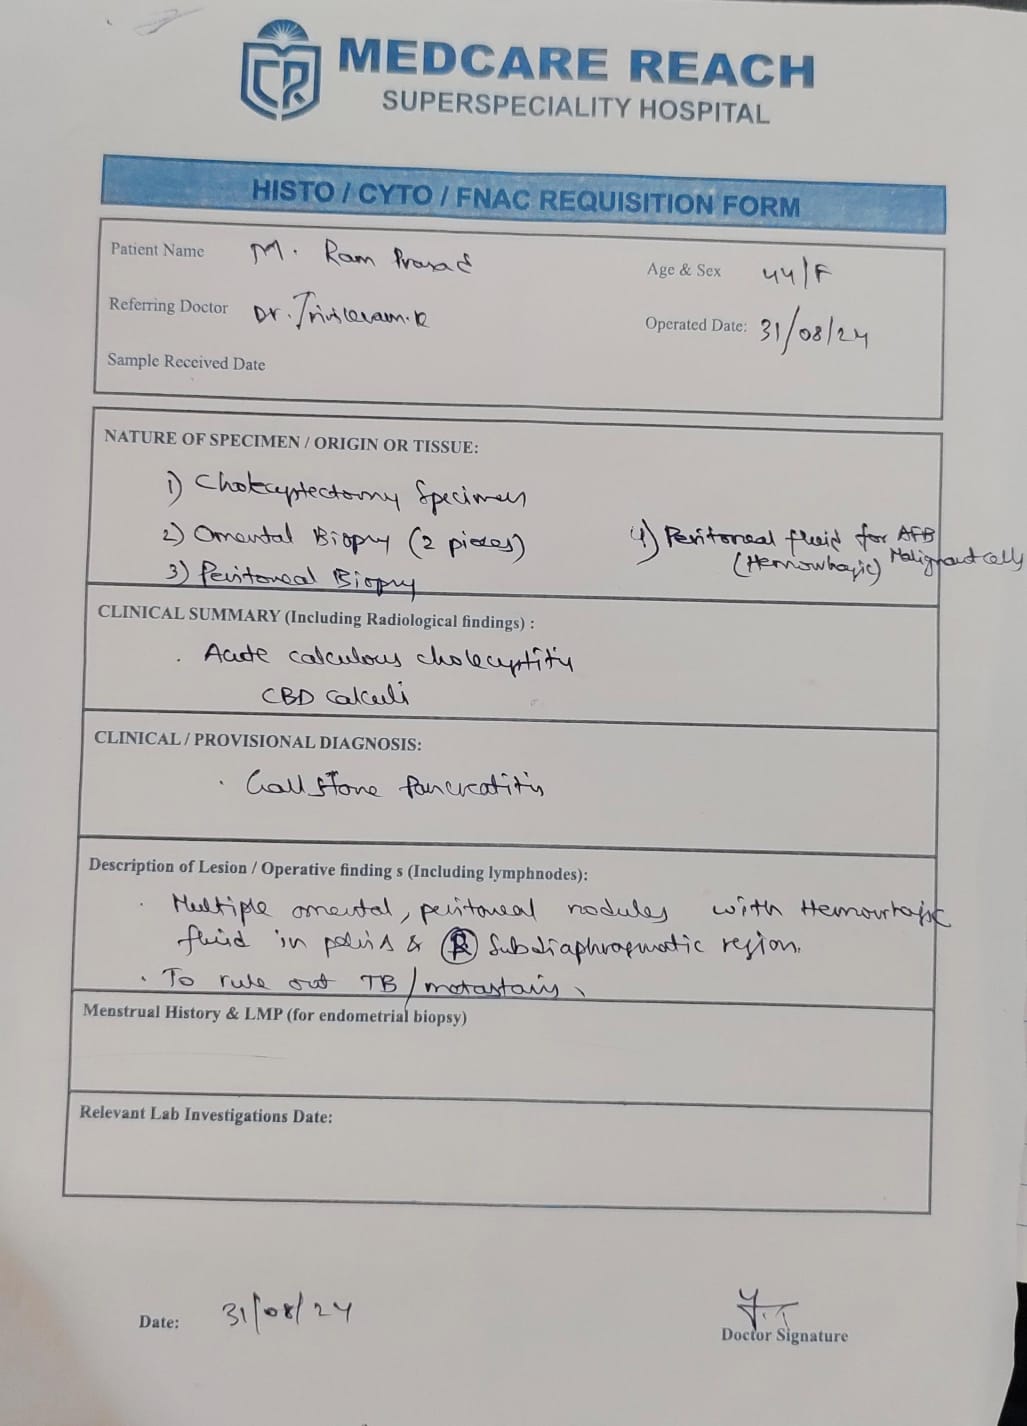 MEDCARE REACH
SUPERSPECIALITY HOSPITAL
HISTO / CYTO / FNAC REQUISITION FORM
Patient Name M. Ram Prasad
Age & Sex 44/F
Referring Doctor Dr.
Operated Date: 31/08/24
Sample Received Date
NATURE OF SPECIMEN / ORIGIN OR TISSUE:
1) Cholecystectomy Specimen
2) Omental Biopsy (2 pieces)
3) Peritoneal Biopsy
4) Peritoneal fluid for AFB
(Hemorrhagic) Malignant cells
CLINICAL SUMMARY (Including Radiological findings) :
. Acute calculous cholecystitis
CBD calculi
CLINICAL / PROVISIONAL DIAGNOSIS:
. Gall stone Pancreatitis
Description of Lesion / Operative finding s (Including lymphnodes):
. Multiple omental, peritoneal nodules with Hemorrhagic
fluid in pelvis & (R) Subdiaphragmatic region.
. To rule out TB / metastasis
Menstrual History & LMP (for endometrial biopsy)
Relevant Lab Investigations Date:
Date: 31/08/24
Doctor Signature